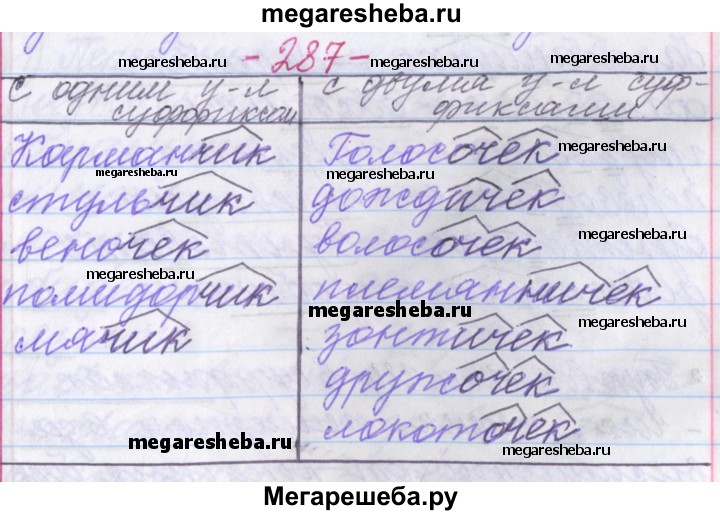 megaresheba.ru
- 287 -
megaresheba.ru megaresheba.ru
С одним у-м суффиксом
с двумя у-м суф-
фиксами
Карманчик Голосочек
megaresheba.ru
megaresheba.ru
стульчик дождичек
megaresheba.ru megaresheba.ru
веночек волосочек
megaresheba.ru
помидорчик племянничек
megaresheba.ru
мячик зонтичек
megaresheba.ru
дружочек
megaresheba.ru
локоточек
megaresheba.ru
megaresheba.ru
Мегарешеба.ру